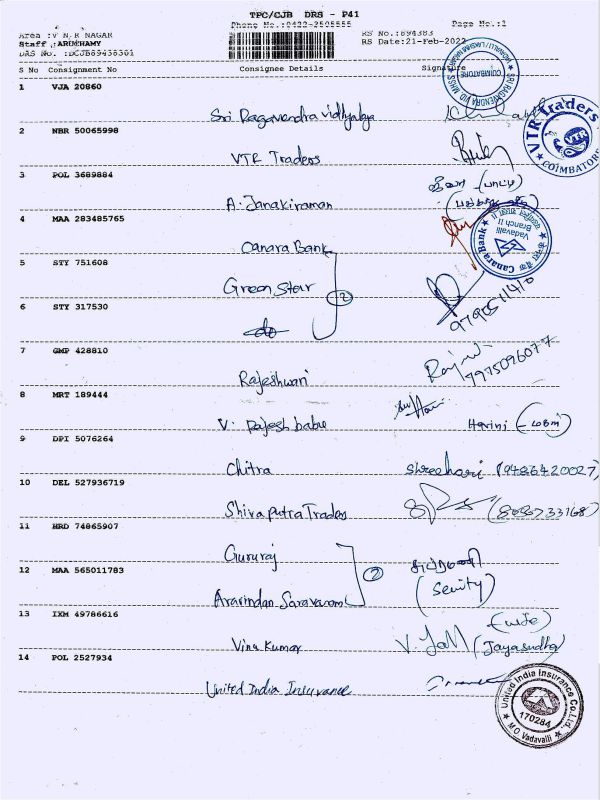 TPC/CJB DRS - P41
Phone No.:0422-2505555
Page No.:1
Area :V N R NAGAR
Staff :ARUCHAMY
DRS No. :DCJB89438361
RS No.:894383
RS Date:21-Feb-2022
S No Consignment No Consignee Details Signature
1 VJA 20860
Sri Ragavendra Vidhyalya
COIMBATORE
2 NBR 50065998
VTR Traders
VTR Traders
COIMBATORE
3 POL 3689884
A. Janakiraman
ஜீவா (பாட்டி)
4 MAA 283485765
Canara Bank
Canara Bank
Vadavalli
Branch II
5 STY 751608
Green Star
2
6 STY 317530
do
9790511410
7 GMP 428810
Rajeshwari
7975096077
8 MRT 189444
V. Rajesh babu
Harini (மகள்)
9 DPI 5076264
Chitra
Shreehari (9486420027)
10 DEL 527936719
Shiva putra Traders
11 HRD 74865907
Gururaj
2
12 MAA 565011783
Aravindan Saravanan
(Seniity)
13 IXM 49786616
Vinu Kumar
(wife)
(Jayasudha)
14 POL 2527934
United India Insurance
United India Insurance Co. Ltd.
170284
M.O. Vadavalli